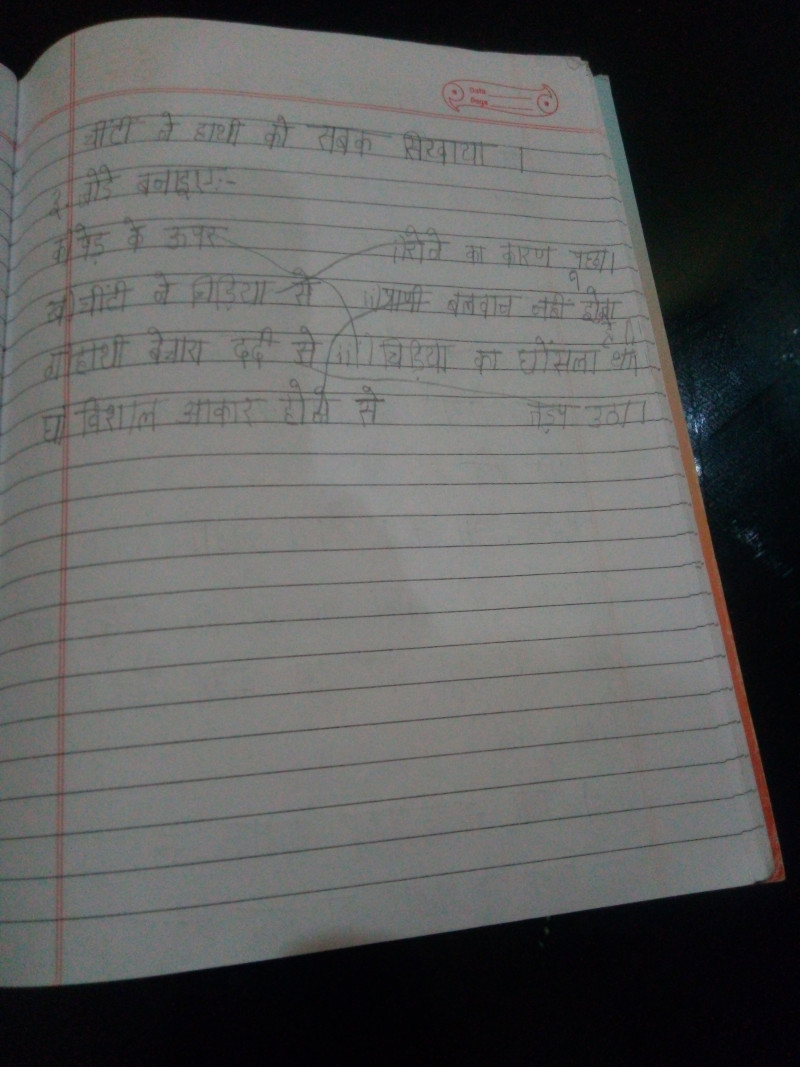 Date
Page
चींटी ने हाथी को सबक सिखाया ।
जोड़े बनाइए:-
क) पेड़ के ऊपर i) रोने का कारण पूछा।
ख) चींटी ने चिड़िया से ii) प्राणी बलवान नहीं होता
ग) हाथी बेचारा दर्द से iii) चिड़िया का घोंसला था।
घ) विशाल आकार होने से तड़प उठा।